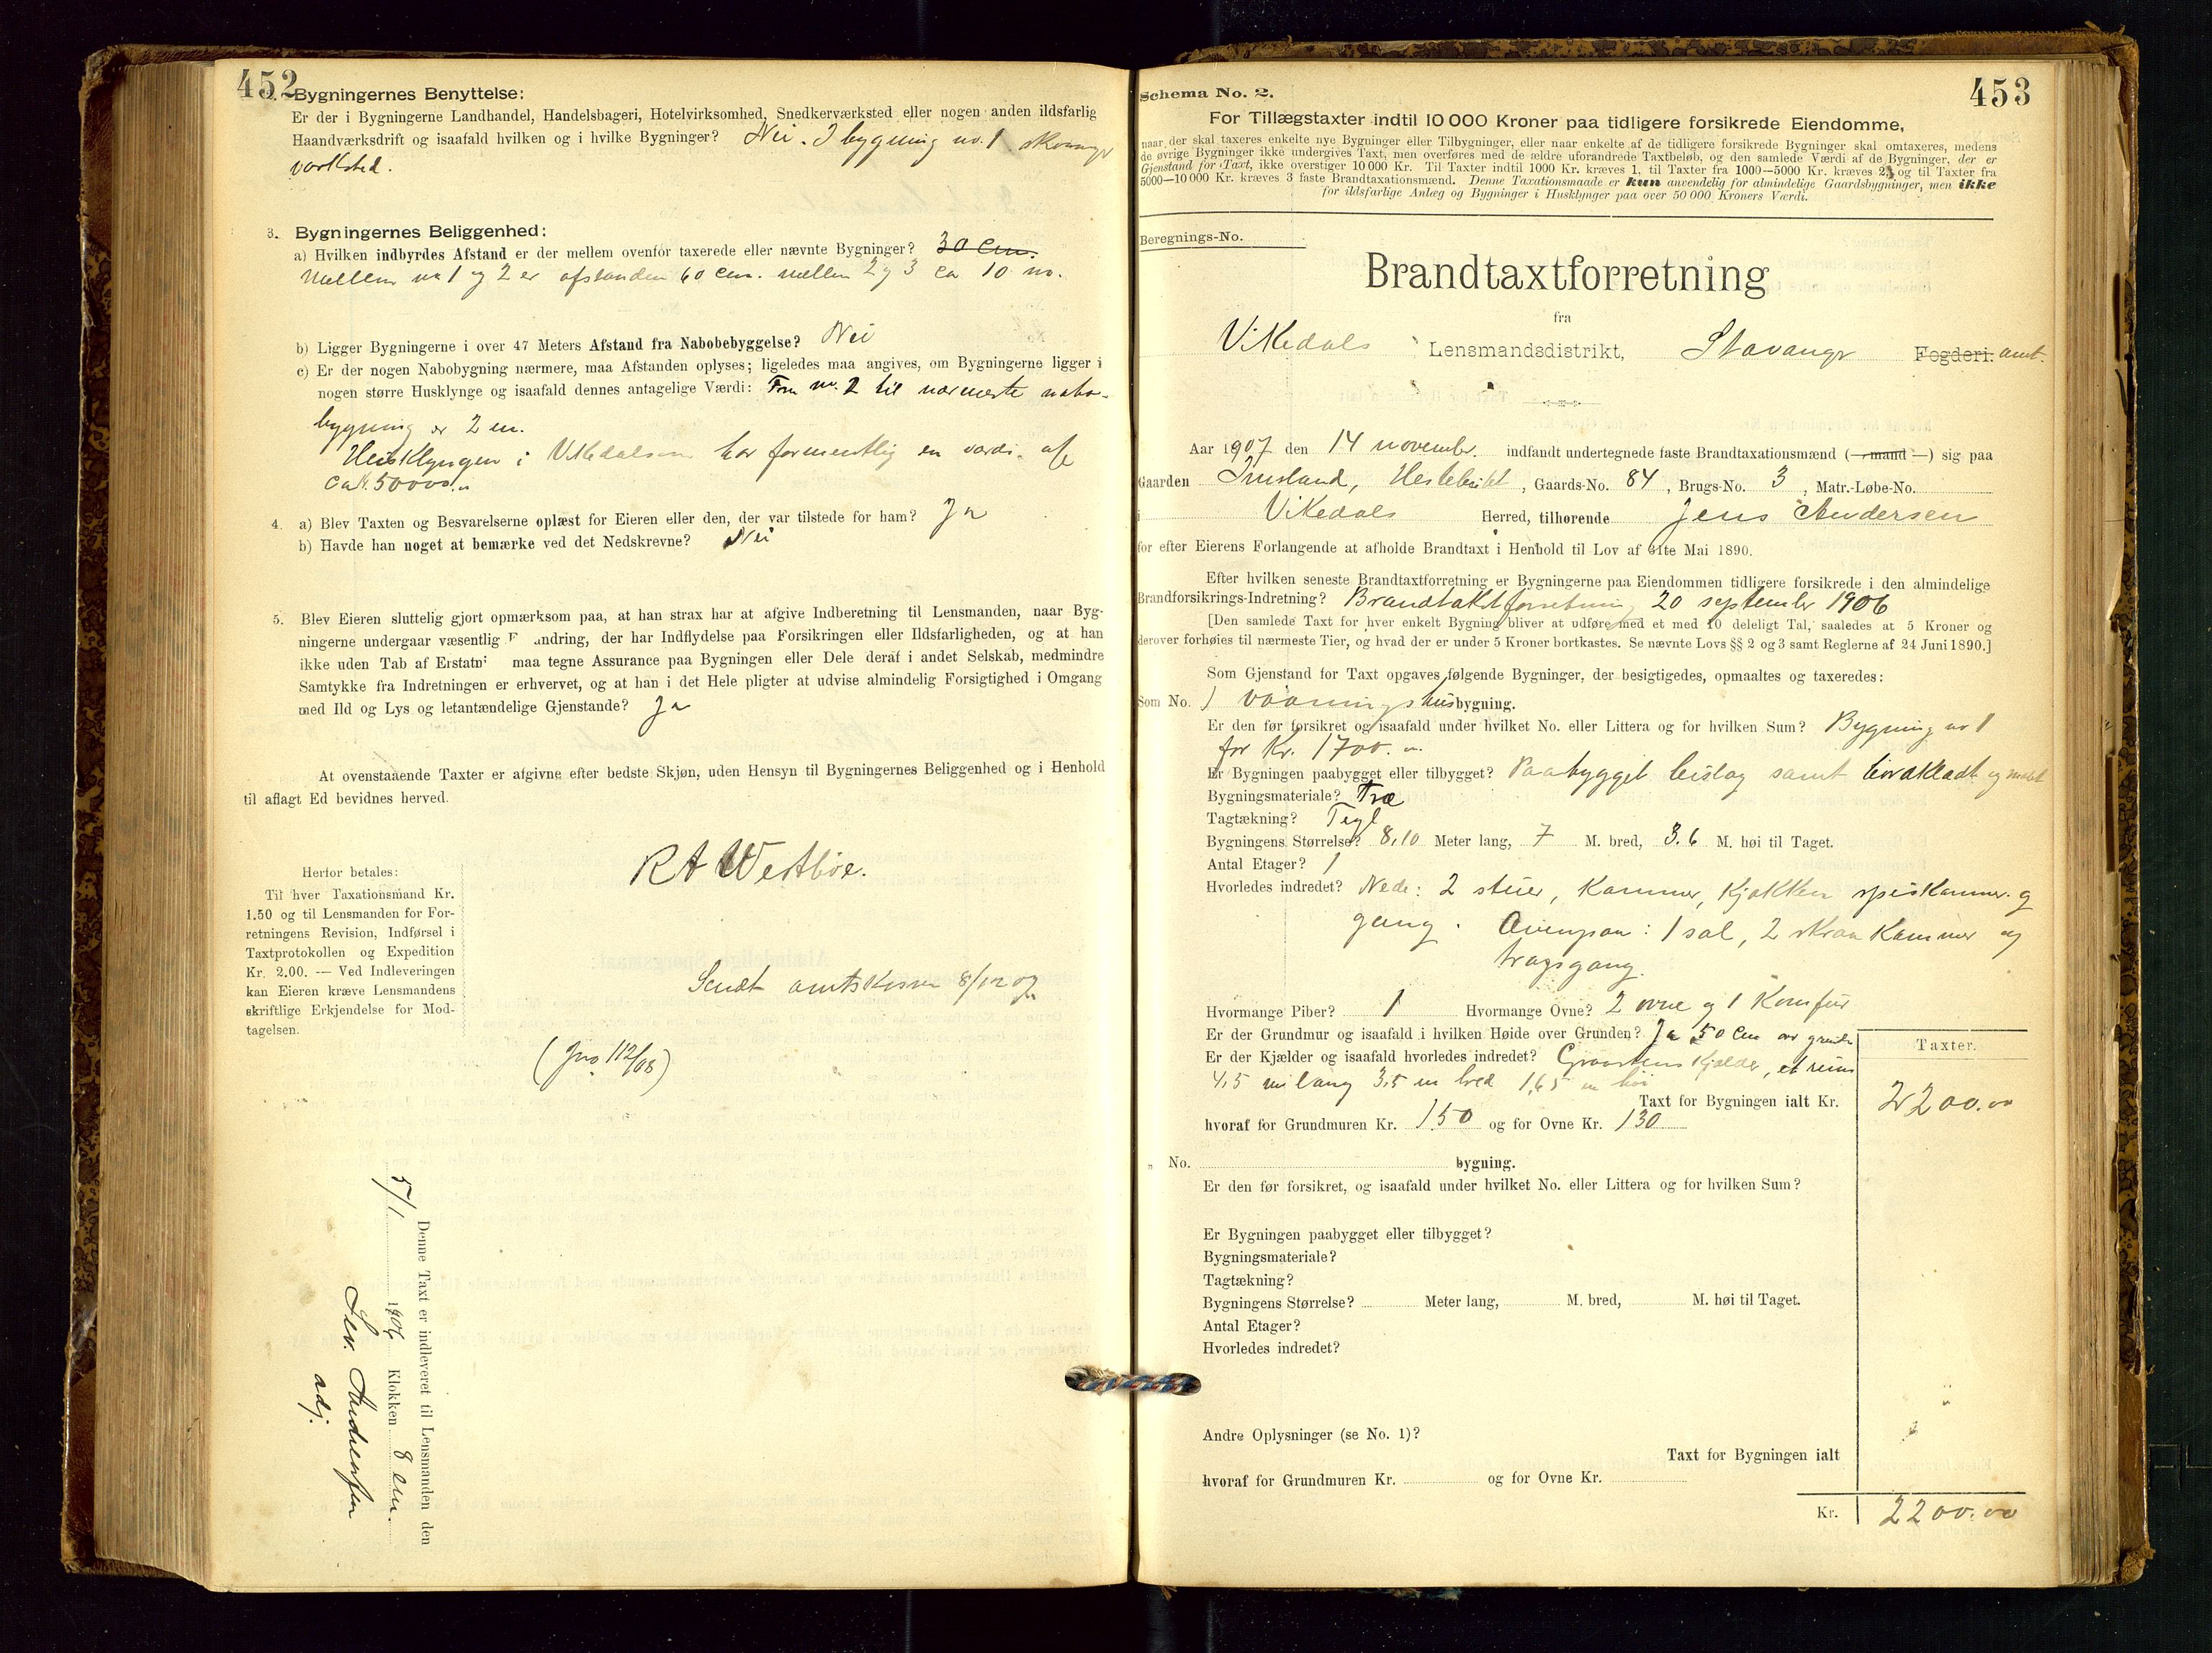 452
Bygningernes Benyttelse:
Er der i Bygningerne Landhandel, Handelsbageri, Hotelvirksomhed, Snedkerværksted eller nogen anden ildsfarlig
Haandværksdrift og isaafald hvilken og i hvilke Bygninger? Nei. I bygning no. 1
3. Bygningernes Beliggenhed:
a) Hvilken indbyrdes Afstand er der mellem ovenfor taxerede eller nævnte Bygninger? 30 Cm.
Mellem no 1 og 2 er afstanden 60 cm. mellem 2 og 3 ca 10 m.
b) Ligger Bygningerne i over 47 Meters Afstand fra Nabobebyggelse? Nei
c) Er der nogen Nabobygning nærmere, maa Afstanden oplyses; ligeledes maa angives, om Bygningerne ligger i
nogen større Husklynge og isaafald dennes antagelige Værdi: Fra no. 2 til nærmeste nabo-
bygning er 2 m.
Husklyngen i har formentlig en værdi af
ca kr. 50000.
4. a) Blev Taxten og Besvarelserne oplæst for Eieren eller den, der var tilstede for ham? Ja
b) Havde han noget at bemærke ved det Nedskrevne? Nei
5. Blev Eieren sluttelig gjort opmærksom paa, at han strax har at afgive Indberetning til Lensmanden, naar Byg-
ningerne undergaar væsentlig F andring, der har Indflydelse paa Forsikringen eller Ildsfarligheden, og at han
ikke uden Tab af Erstatn maa tegne Assurance paa Bygningen eller Dele deraf i andet Selskab, medmindre
Samtykke fra Indretningen er erhvervet, og at han i det Hele pligter at udvise almindelig Forsigtighed i Omgang
med Ild og Lys og letantændelige Gjenstande? Ja
At ovenstaaende Taxter er afgivne efter bedste Skjøn, uden Hensyn til Bygningernes Beliggenhed og i Henhold
til aflagt Ed bevidnes herved.
Herfor betales:
Til hver Taxationsmand Kr.
1.50 og til Lensmanden for For-
retningens Revision, Indførsel i
Taxtprotokollen og Expedition
Kr. 2.00. — Ved Indleveringen
kan Eieren kræve Lensmandens
skriftlige Erkjendelse for Mod-
tagelsen.
R A Westbøe.
Sendt amtskasren 8/12 07
(Jno 112/08)
Denne Taxt er indleveret til Lensmanden den
5/1 1906 Klokken 8 em.
Sev. Andreassen
adj.
453
Schema No. 2.
For Tillægstaxter indtil 10 000 Kroner paa tidligere forsikrede Eiendomme,
naar der skal taxeres enkelte nye Bygninger eller Tilbygninger, eller naar enkelte af de tidligere forsikrede Bygninger skal omtaxeres, medens
de øvrige Bygninger ikke undergives Taxt, men overføres med de ældre uforandrede Taxtbeløb, og den samlede Værdi af de Bygninger, der er
Gjenstand for Taxt, ikke overstiger 10 000 Kr. Til Taxter indtil 1000 Kr. kræves 1, til Taxter fra 1000—5000 Kr. kræves 2, og til Taxter fra
5000—10 000 Kr. kræves 3 faste Brandtaxationsmænd. Denne Taxationsmaade er kun anvendelig for almindelige Gaardsbygninger, men ikke
for ildsfarlige Anlæg og Bygninger i Husklynger paa over 50 000 Kroners Værdi.
Beregnings-No.
Brandtaxtforretning
fra
Vikedals Lensmandsdistrikt, Stavanger Fogderi. amt.
Aar 1907 den 14 novembr. indfandt undertegnede faste Brandtaxationsmænd (— mand —) sig paa
Gaarden Imsland, , Gaards-No. 84, Brugs-No. 3, Matr.-Løbe-No.
i Vikedals Herred, tilhørende Jens Andersen
for efter Eierens Forlangende at afholde Brandtaxt i Henhold til Lov af 31te Mai 1890.
Efter hvilken seneste Brandtaxtforretning er Bygningerne paa Eiendommen tidligere forsikrede i den almindelige
Brandforsikrings-Indretning? Brandtakstforretning 20 september 1906
[Den samlede Taxt for hver enkelt Bygning bliver at udføre med et med 10 deleligt Tal, saaledes at 5 Kroner og
derover forhøies til nærmeste Tier, og hvad der er under 5 Kroner bortkastes. Se nævnte Lovs §§ 2 og 3 samt Reglerne af 24 Juni 1890.]
Som Gjenstand for Taxt opgaves følgende Bygninger, der besigtigedes, opmaaltes og taxeredes:
Som No. 1 vaaningshusbygning.
Er den før forsikret og isaafald under hvilket No. eller Littera og for hvilken Sum? Bygning no 1
for Kr. 1700.
Er Bygningen paabygget eller tilbygget? Paabygget bislag samt bordklædt og malet
Bygningsmateriale? Træ
Tagtækning? Tegl
Bygningens Størrelse? 8,10 Meter lang, 7 M. bred, 3.6 M. høi til Taget.
Antal Etager? 1
Hvorledes indredet? Nede: 2 stuer, Kammer, Kjøkken spiskammer og
gang. Ovenpaa: 1 sal, 2 skraa Kammer og
trapgang.
Hvormange Piber? 1 Hvormange Ovne? 2 ovne og 1 Komfur
Er der Grundmur og isaafald i hvilken Høide over Grunden? Ja 50 Cm
Er der Kjælder og isaafald hvorledes indredet? Graastens Kjælder, et rum
4,5 m lang 3,5 m bred 1,65 m høi
Taxter.
Taxt for Bygningen ialt Kr. 2200.00
hvoraf for Grundmuren Kr. 150 og for Ovne Kr. 130
„ No. bygning.
Er den før forsikret, og isaafald under hvilket No. eller Littera og for hvilken Sum?
Er Bygningen paabygget eller tilbygget?
Bygningsmateriale?
Tagtækning?
Bygningens Størrelse? Meter lang, M. bred, M. høi til Taget.
Antal Etager?
Hvorledes indredet?
Andre Oplysninger (se No. 1)?
Taxt for Bygningen ialt
hvoraf for Grundmuren Kr. og for Ovne Kr.
Kr. 2200.00